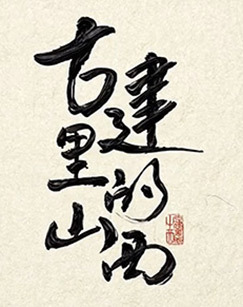 古建
里的
山西